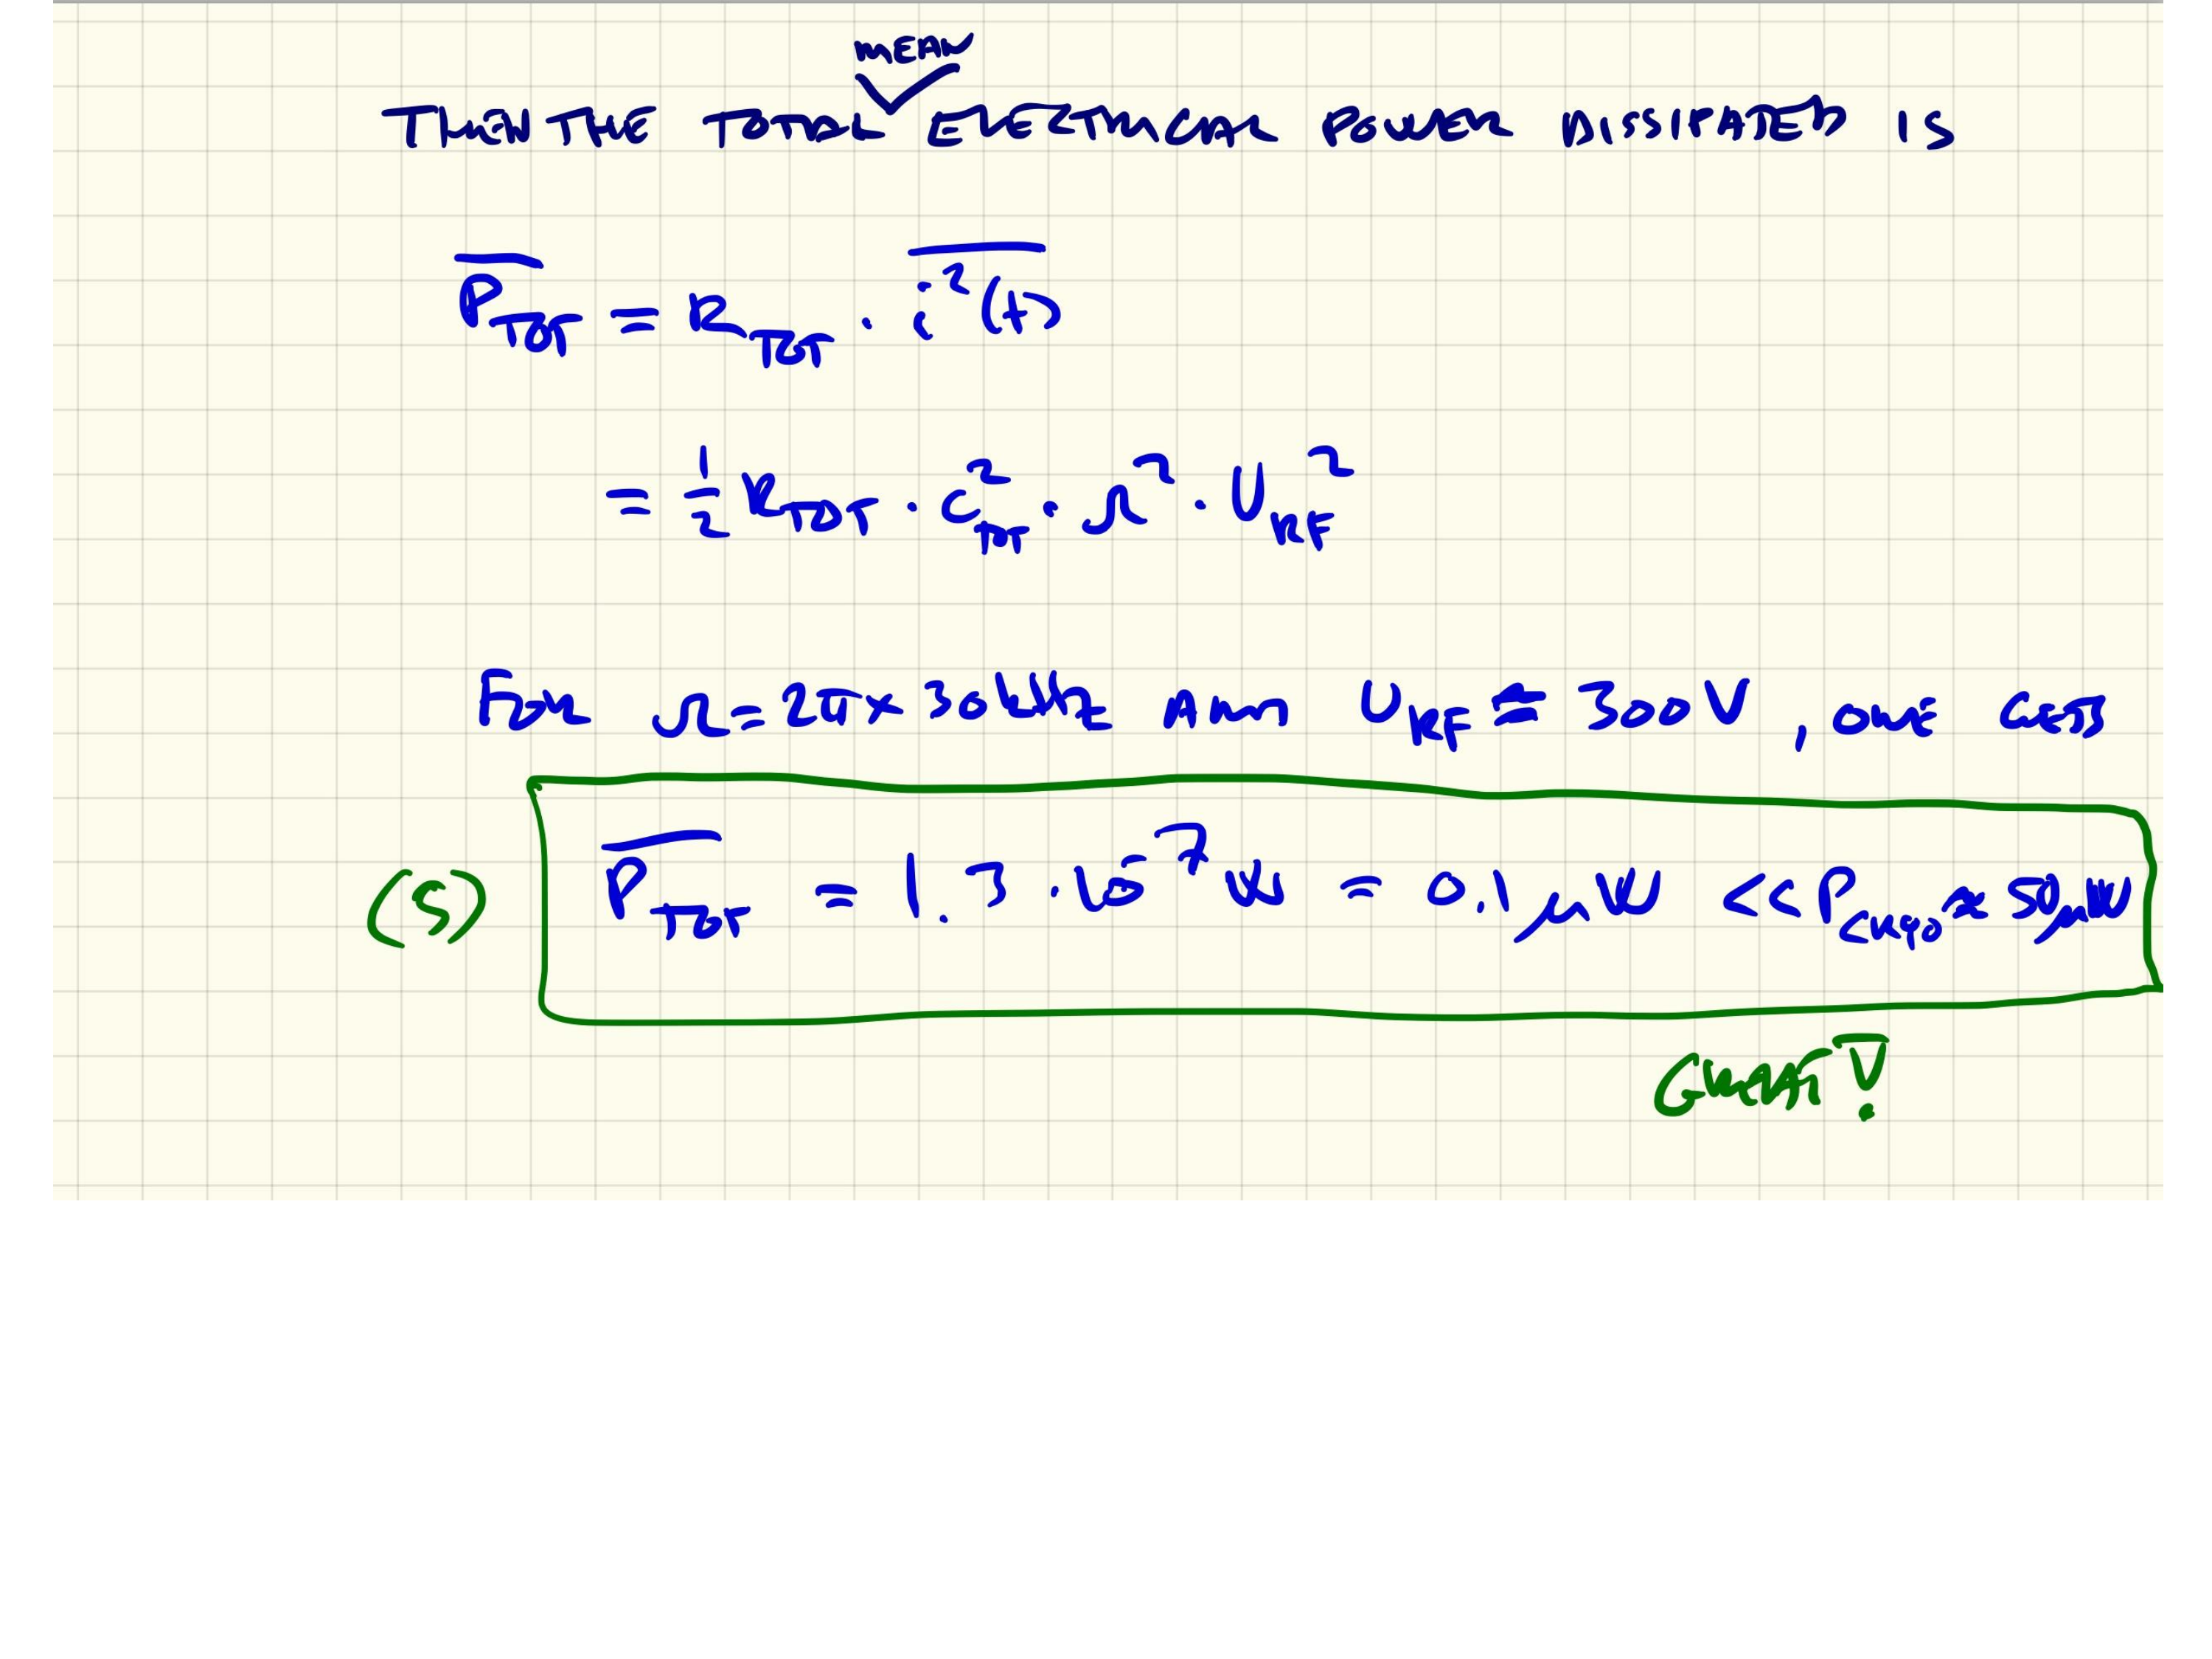 MEAN
THEN THE TOTAL ELECTRICAL POWER DISSIPATED IS
P_TOT = R_TOT · i²(t)
= 1/2 R_TOT · C²_TOT · Ω² · U_RF²
FOR Ω = 2π × 30 MHz AND U_RF = 300V, ONE GETS
(5) P_TOT = 1.3 · 10⁻⁷ W = 0.1 μW << P_CRYO ≈ 50 μW
GREAT!